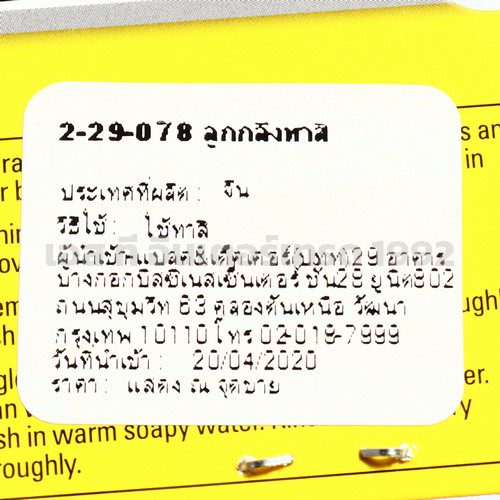 2-29-078 ลูกกลิ้งทาสี
ประเทศที่ผลิต : จีน
วิธีใช้ : ใช้ทาสี
ผู้นำเข้า-แบลค&เด็คเกอร์(ปทท)29 อาคาร
บางกอกบิสซิเนสเซ็นเตอร์ ชั้น28 ยูนิต802
ถนนสุขุมวิท 63 คลองตันเหนือ วัฒนา
กรุงเทพ 10110 โทร 02-019-7999
วันที่นำเข้า : 20/04/2020
ราคา : แสดง ณ จุดขาย
sh in warm soapy water.
roughly.